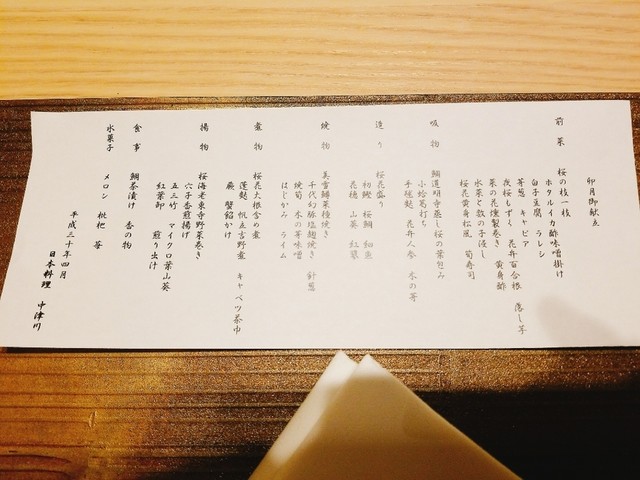 卯月御献立
前菜 桜の枝一枝
ホタルイカ酢味噌掛け
白子豆腐 ラレシ
芽葱 キャビア
夜桜もずく 花弁百合根 蒸し芋
菜の花燻製巻き 黄身酢
水菜と数の子浸し
桜花黄身松風 筍寿司
吸物 鯛道明寺蒸し桜の葉包み
小蛤葛打ち
手毬麩 花弁人参 木の芽
造り 桜花盛り
初鰹 桜鯛 和魚
花穂 山葵 紅蓼
焼物 美雪鱒菜種焼き
千代幻豚塩麹焼き 針葱
焼筍 木の芽味噌
はじかみ ライム
煮物 桜花大根含め煮
蓬麩 帆立吉野煮 キャベツ茶巾
蕨 蟹餡かけ
揚物 桜海老東寺野菜巻き
穴子香煎揚げ
五三竹 マイクロ葉山葵
紅葉卸 煎り出汁
食事 鯛茶漬け 香の物
水菓子 メロン 枇杷 苺
平成三十年四月
日本料理 中津川